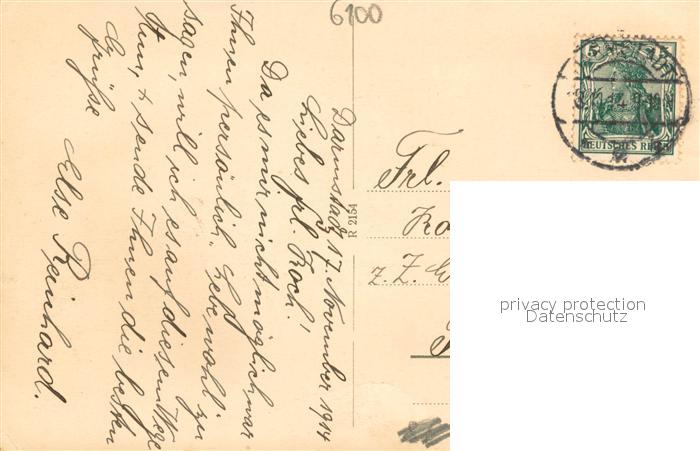 6100
Darmstadt, 17. November 1914
Liebes Frl. Koch!
Da es mir nicht möglich war
Ihnen persönlich Lebewohl zu
sagen, will ich es auf diesem Wege
tun, + sende Ihnen die besten
Grüße
Else Reinhard.
R 2151
Frl.
Ko
z. Z.
5 5
DEUTSCHES REICH
privacy protection
Datenschutz